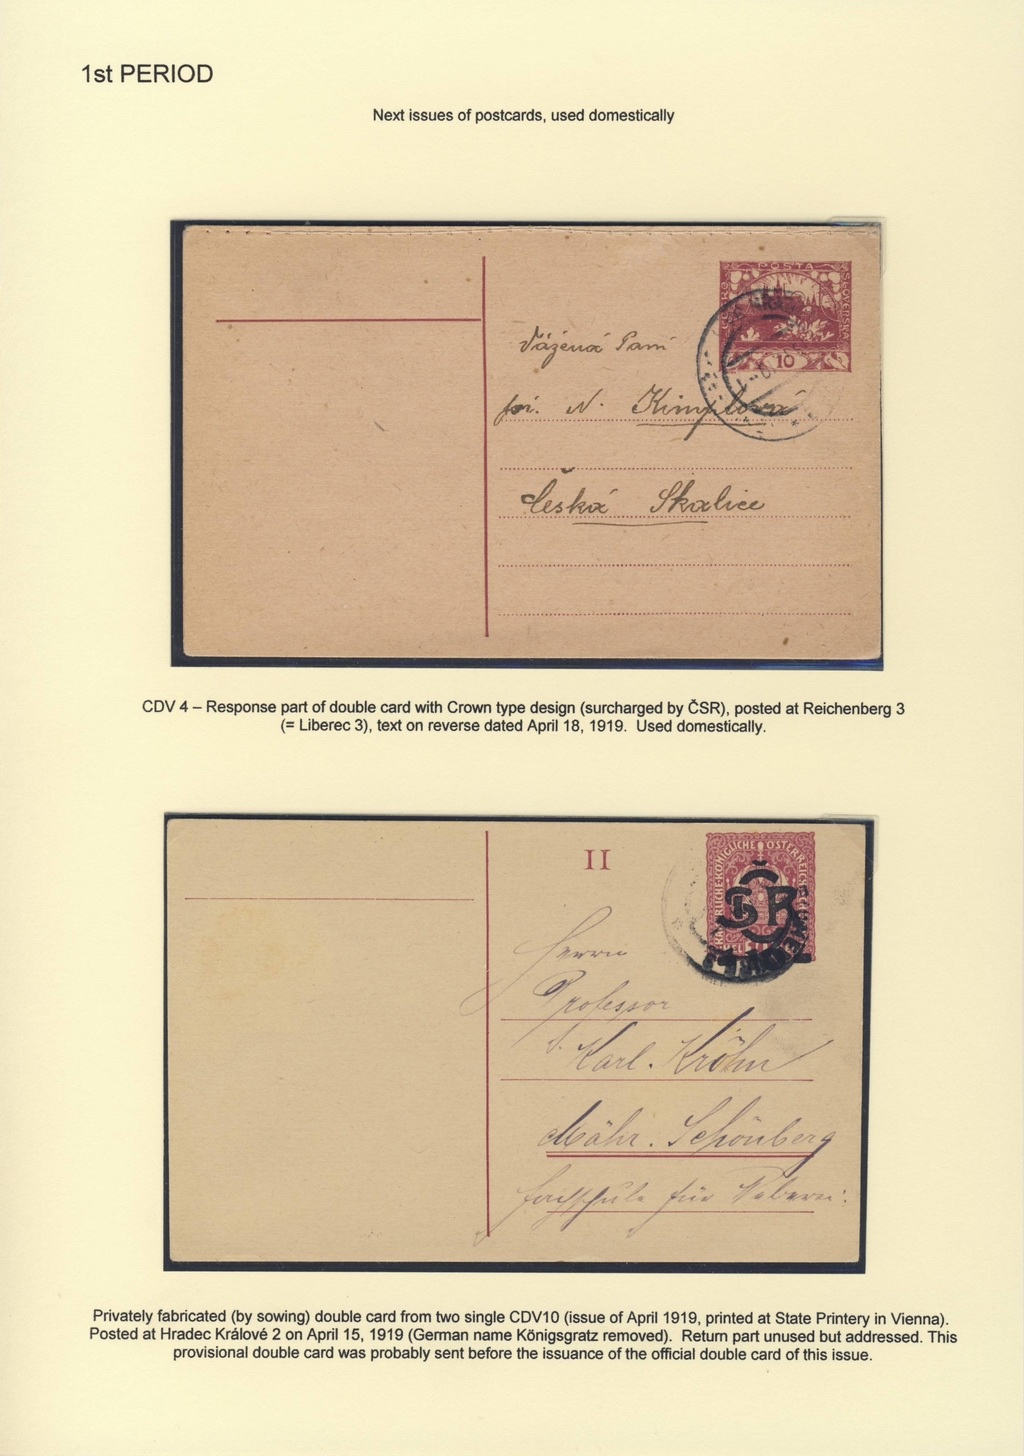 1st PERIOD
Next issues of postcards, used domestically
POSTA
ČESKO
SLOVENSKÁ
10
Vážená Paní
pí. N.
Česká Skalice
CDV 4 – Response part of double card with Crown type design (surcharged by ČSR), posted at Reichenberg 3
(= Liberec 3), text on reverse dated April 18, 1919. Used domestically.
II
ČSR
Herrn
Professor
Karl. Kröhn
Mähr. Schönberg
Fachschule für Weberei.
Privately fabricated (by sowing) double card from two single CDV10 (issue of April 1919, printed at State Printery in Vienna).
Posted at Hradec Králové 2 on April 15, 1919 (German name Königsgratz removed). Return part unused but addressed. This
provisional double card was probably sent before the issuance of the official double card of this issue.